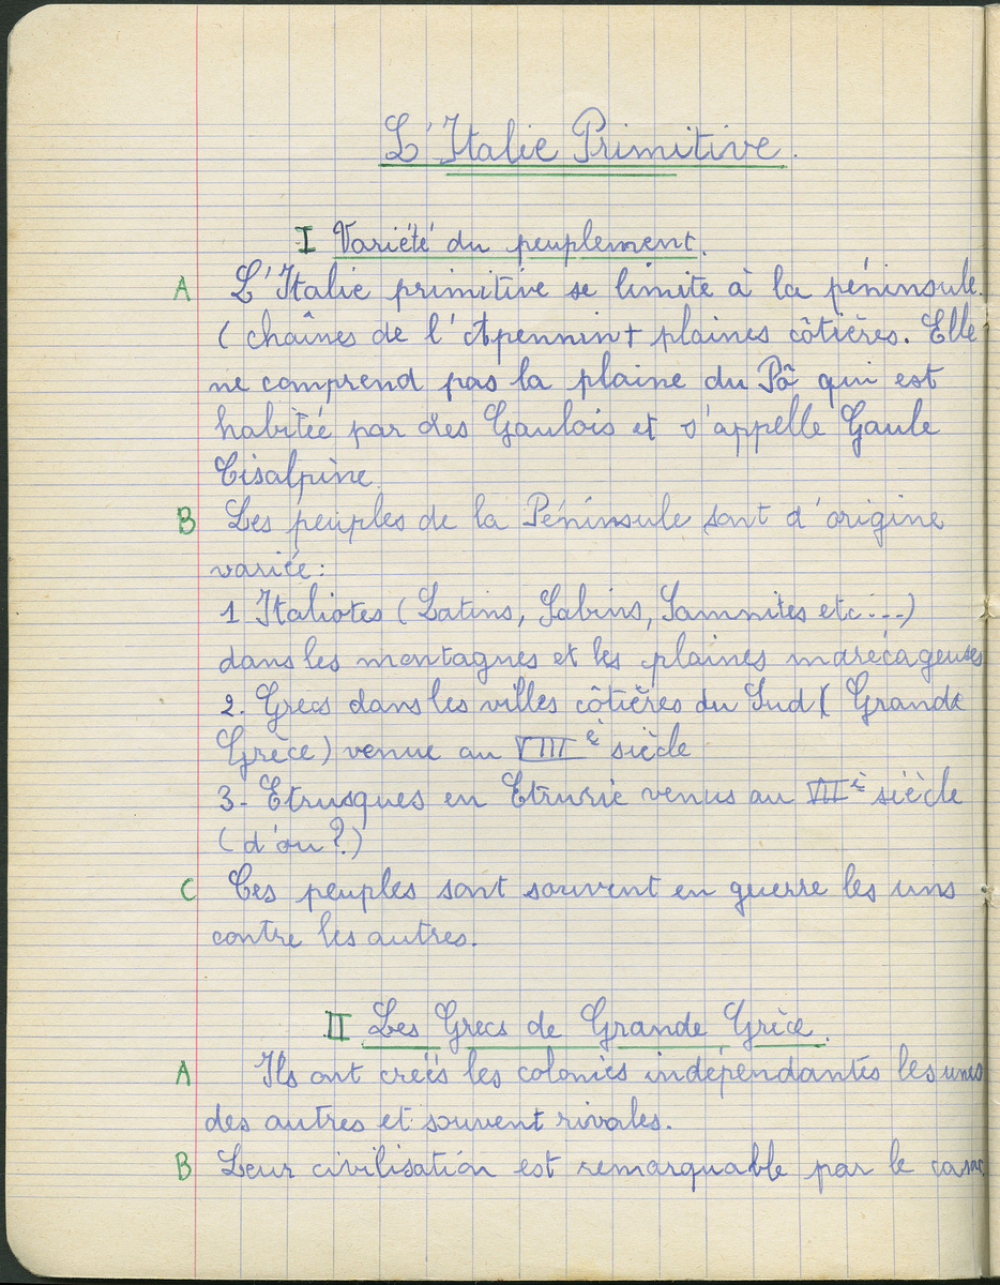 L'Italie Primitive.
I Variété du peuplement.
A L'Italie primitive se limite à la péninsule.
( chaînes de l'Apennin + plaines côtières. Elle
ne comprend pas la plaine du Pô qui est
habitée par des Gaulois et s'appelle Gaule
Cisalpine.
B Les peuples de la Péninsule sont d'origine
variée :
1 Italiotes ( Latins, Sabins, Samnites etc ....)
dans les montagnes et les plaines marécageuses
2. Grecs dans les villes côtières du Sud ( Grande
Grèce ) venue au VIIIè siècle
3- Etrusques en Etrurie venus au VIIè siècle
( d'ou ? )
C Ces peuples sont souvent en guerre les uns
contre les autres.
II Les Grecs de Grande Grèce.
A Ils ont créés les colonies indépendantes les unes
des autres et souvent rivales.
B Leur civilisation est remarquable par le